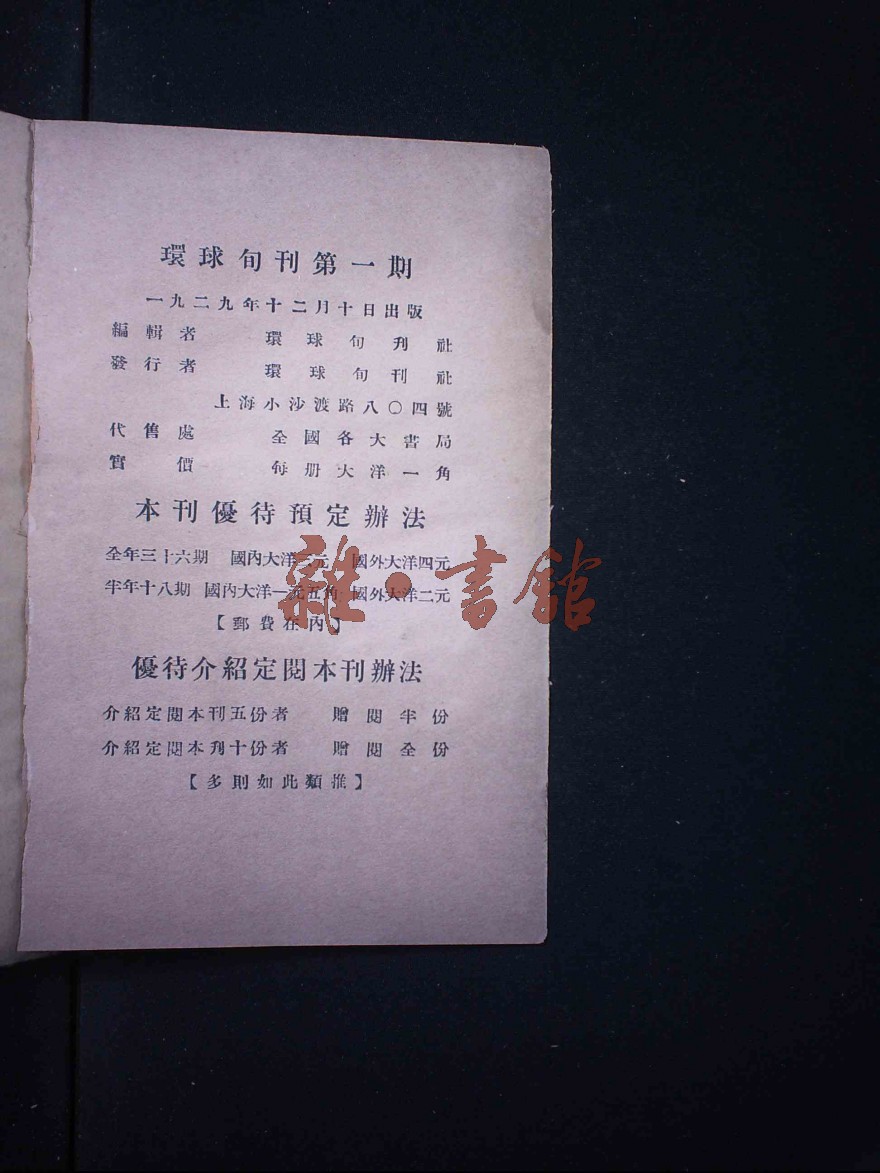 環球旬刊第一期
一九二九年十二月十日出版
編輯者 環球旬刋社
發行者 環球旬刊社
上海小沙渡路八〇四號
代售處 全國各大書局
實價 每册大洋一角
本刊優待預定辦法
全年三十六期 國內大洋三元 國外大洋四元
半年十八期 國內大洋一元五角 國外大洋二元
【郵費在內】
雜·書館
優待介紹定閱本刊辦法
介紹定閱本刊五份者 贈閱半份
介紹定閱本刋十份者 贈閱全份
【多則如此類推】